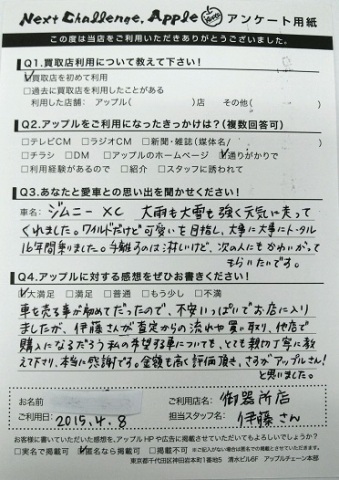 Next Challenge, Apple アンケート用紙
この度は当店をご利用いただきありがとうございました。
Q1.買取店利用について教えて下さい!
☑買取店を初めて利用
□過去に買取店を利用したことがある
利用した店舗: アップル( )店 その他( )
Q2.アップルをご利用になったきっかけは?(複数回答可)
□テレビCM □ラジオCM □新聞・雑誌(媒体名/ )
□チラシ □DM □アップルのホームページ ☑通りがかりで
□利用経験があるので □紹介 □スタッフに誘われて
Q3.あなたと愛車との思い出を聞かせください!
車名: ジムニー XC 大雨も大雪も強く元気に走って
くれました。ワイルドだけど可愛いを目指し、大事に大事にトータル
16年間乗りました。手離すのは淋しいけど、次の人にもかわいがって
もらいたいです。
Q4.アップルに対する感想をぜひお書きください!
☑大満足 □満足 □普通 □もう少し □不満
車を売る事が初めてだったので、不安いっぱいでお店に入り
ましたが、伊藤さんが査定からの流れや買い取り、他店で
購入になるだろう私の希望する車についても、とても親切丁寧に教
えて下さり、本当に感謝です。金額も高く評価頂き、さすがアップルさん!
と思いました。
お名前
ご利用店名: 御器所店
ご利用日: 2015.4.8 担当スタッフ名: 伊藤さん
お客様に書いていただいた感想を、アップルHPや広告に掲載させていただいてもよろしいでしょうか?
□実名で掲載可 ☑匿名なら掲載可 □掲載不可 ※ご記入がない場合は匿名での掲載とさせていただきます。
東京都千代田区神田岩本町1番地5 清水ビル6F アップルチェーン本部